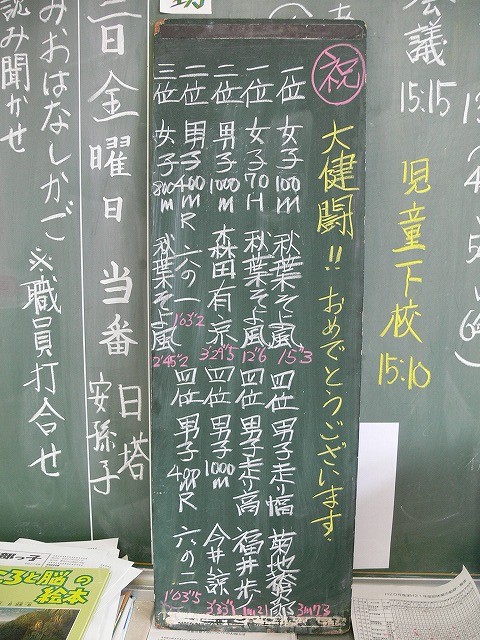 会議
15:15
児童下校
15:10
祝
大健闘!!おめでとうございます
一位 女子100m 秋葉そよ風 15"3
一位 女子70H 秋葉そよ風 12"6
二位 男子1000m 森田有京 3'29"5
二位 男子400mR 六の一 1'03"2
三位 女子800m 秋葉そよ風 2'45"2
四位 男子走り幅 菊地 3m73
四位 男子走り高 福井歩
四位 男子1000m 今井諒
四位 男子400mR 六の二 1'03"5
日 金曜日 当番 日塔
安孫子
みおはなしかご ※職員打合せ
読み聞かせ
脳の
絵本